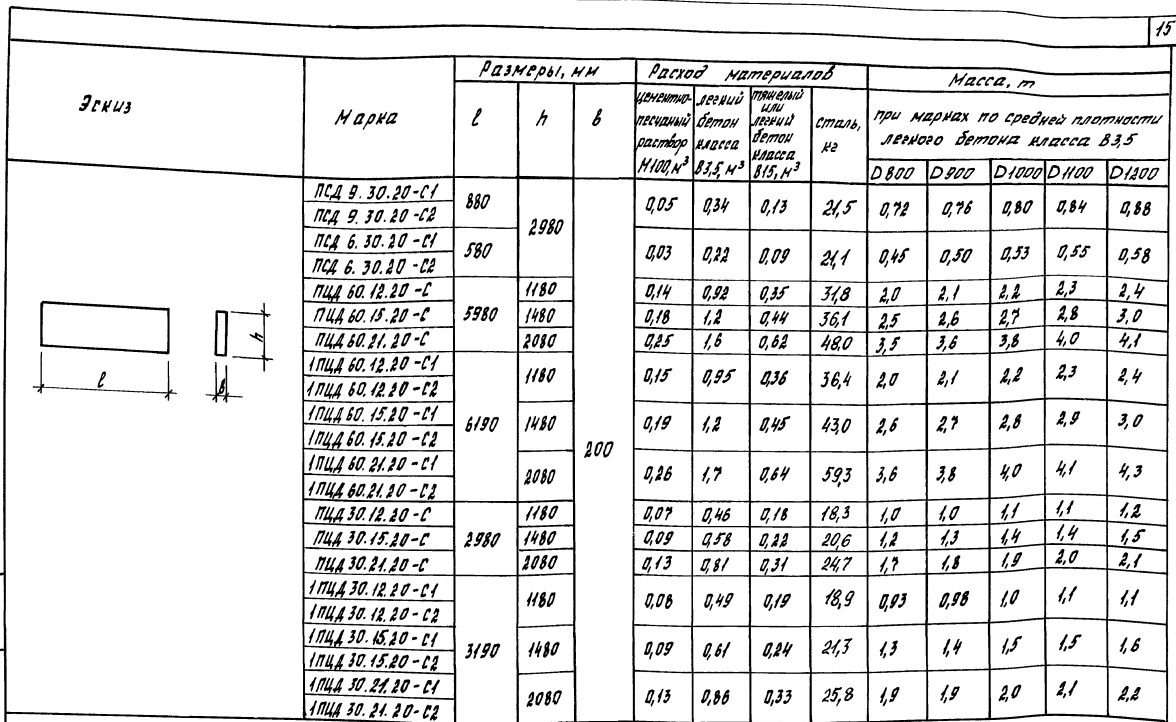 15
Эскиз Марка Размеры, мм Расход материалов Масса, т
l h b цементно-песчаный раствор М100, м³ легкий бетон класса В3,5, м³ тяжелый или легкий бетон класса В15, м³ сталь, кг при марках по средней плотности легкого бетона класса В3,5
D800 D900 D1000 D1100 D1200
ПСД 9.30.20-С1 880 2980 200 0,05 0,34 0,13 21,5 0,72 0,76 0,80 0,84 0,88
ПСД 9.30.20-С2
ПСД 6.30.20-С1 580 0,03 0,22 0,09 21,1 0,45 0,50 0,53 0,55 0,58
ПСД 6.30.20-С2
ПЦД 60.12.20-С 5980 1180 0,14 0,92 0,35 31,8 2,0 2,1 2,2 2,3 2,4
ПЦД 60.15.20-С 1480 0,18 1,2 0,44 36,1 2,5 2,6 2,7 2,8 3,0
ПЦД 60.21.20-С 2080 0,25 1,6 0,62 48,0 3,5 3,6 3,8 4,0 4,1
1ПЦД 60.12.20-С1 6190 1180 0,15 0,95 0,36 36,4 2,0 2,1 2,2 2,3 2,4
1ПЦД 60.12.20-С2
1ПЦД 60.15.20-С1 1480 0,19 1,2 0,45 43,0 2,6 2,7 2,8 2,9 3,0
1ПЦД 60.15.20-С2
1ПЦД 60.21.20-С1 2080 0,26 1,7 0,64 59,3 3,6 3,8 4,0 4,1 4,3
1ПЦД 60.21.20-С2
ПЦД 30.12.20-С 2980 1180 0,07 0,46 0,18 18,3 1,0 1,0 1,1 1,1 1,2
ПЦД 30.15.20-С 1480 0,09 0,58 0,22 20,6 1,2 1,3 1,4 1,4 1,5
ПЦД 30.21.20-С 2080 0,13 0,81 0,31 24,7 1,7 1,8 1,9 2,0 2,1
1ПЦД 30.12.20-С1 3190 1180 0,08 0,49 0,19 18,9 0,93 0,98 1,0 1,1 1,1
1ПЦД 30.12.20-С2
1ПЦД 30.15.20-С1 1480 0,09 0,61 0,24 21,3 1,3 1,4 1,5 1,5 1,6
1ПЦД 30.15.20-С2
1ПЦД 30.21.20-С1 2080 0,13 0,86 0,33 25,8 1,9 1,9 2,0 2,1 2,2
1ПЦД 30.21.20-С2
l b h